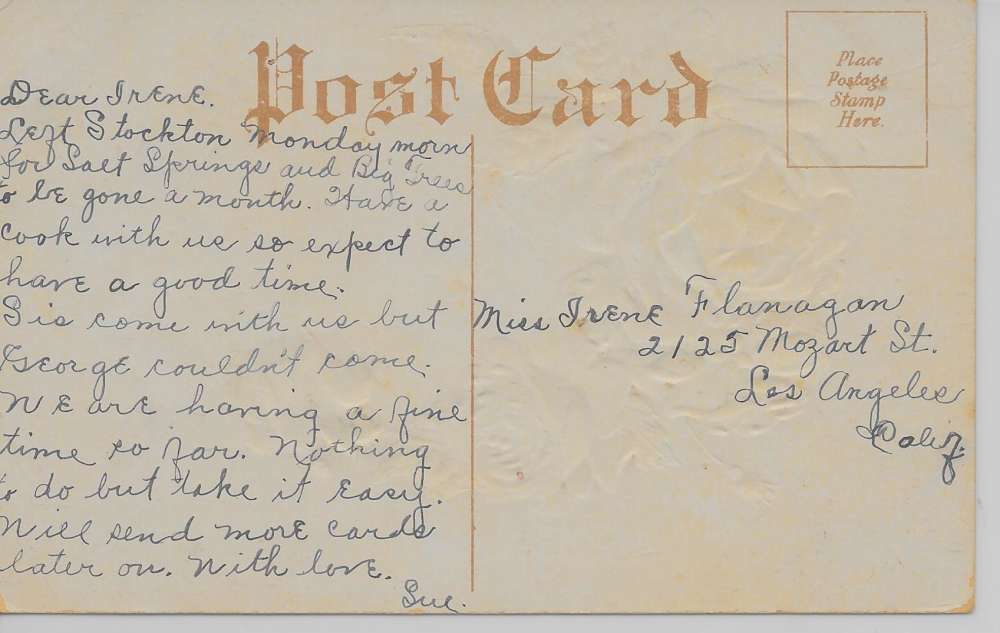 Post Card
Place
Postage
Stamp
Here.
Dear Irene.
Left Stockton Monday morn
for Salt Springs and Big Trees
to be gone a month. Have a
cook with us so expect to
have a good time.
Sis come with us but
George couldn't come.
We are having a fine
time so far. Nothing
to do but take it easy.
Will send more cards
later on. With love.
Sue.
Miss Irene Flanagan
2125 Mozart St.
Los Angeles
Calif.